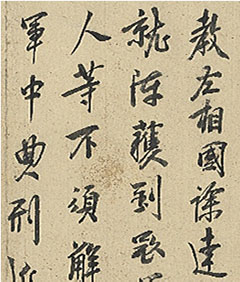 教左相國徐達
就陣獲到
人等不須解
軍中典刑